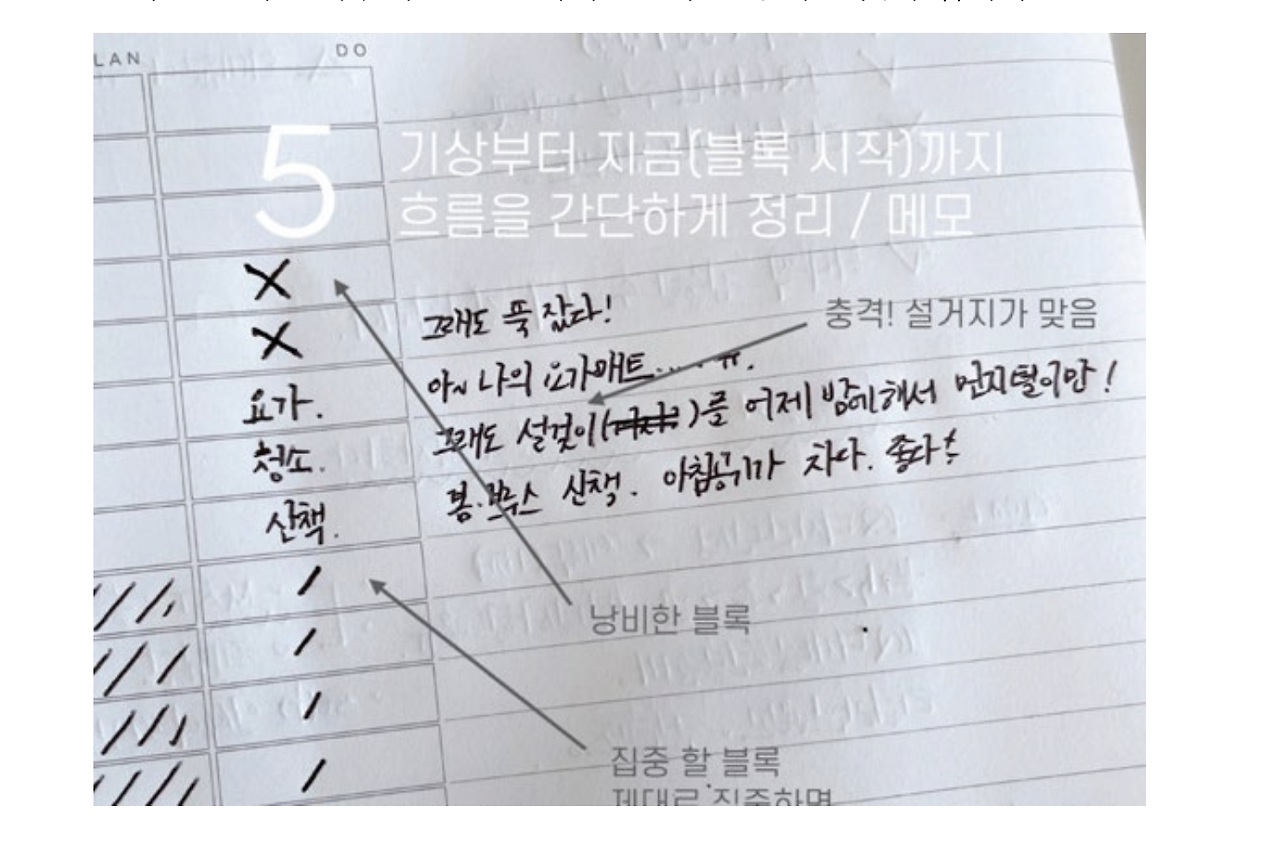 LAN
DO
5
기상부터 지금(블록 시작)까지
흐름을 간단하게 정리 / 메모
X
그래도 푹 잤다!
충격! 설거지가 맞음
X
아~ 나의 요가매트..... ㅠ.
요가.
그래도 설겆이( )를 어제 밤에 해서 먼지털이만!
청소.
봄.보우스 산책. 아침공기가 차다. 좋다!
산책.
낭비한 블록
집중 할 블록
제대로 집중하면